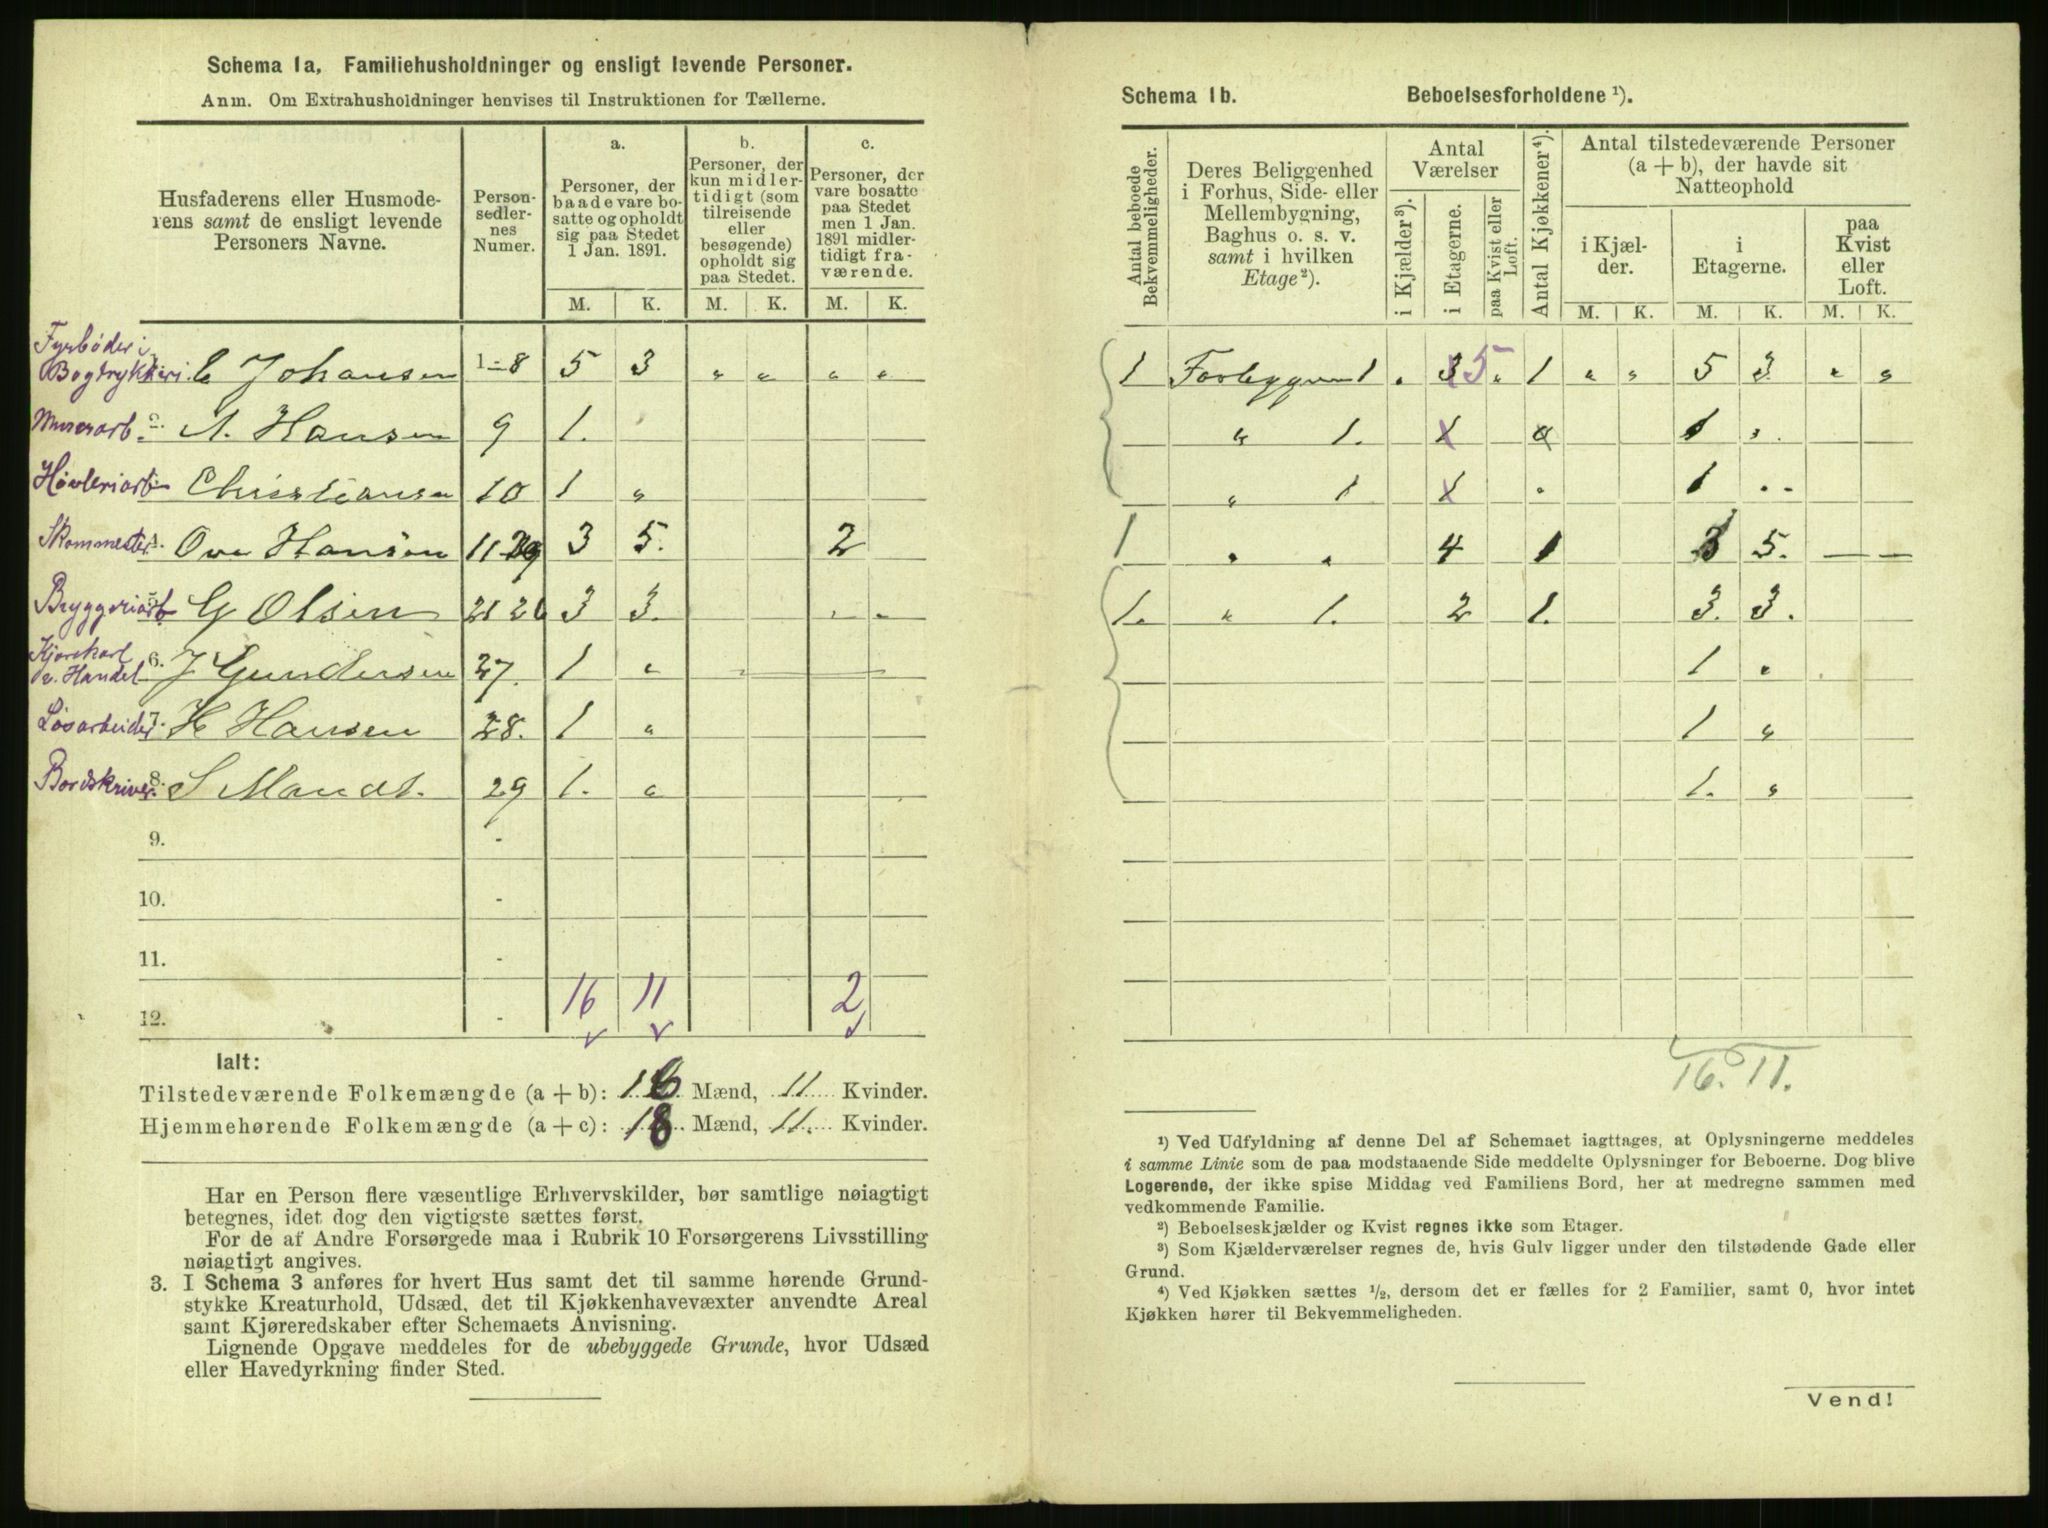 Schema 1a. Familiehusholdninger og ensligt levende Personer.
Anm. Om Extrahusholdninger henvises til Instruktionen for Tællerne.
Husfaderens eller Husmoderens samt de ensligt levende Personers Navne.
Personsedlernes Numer.
a. Personer, der baade vare bosatte og opholdt sig paa Stedet 1 Jan. 1891.
b. Personer, der kun midlertidigt (som tilreisende eller besøgende) opholdt sig paa Stedet.
c. Personer, der vare bosatte paa Stedet men 1 Jan. 1891 midlertidigt fraværende.
M. K. M. K. M. K.
Fyrbøder i Bogtrykkeri. C Johansen 1-8 5 3 " " " "
Murerarb 2. A. Hansen 9 1.
Høvleriarb Christiansen 10 1 "
Skommester 4. Ove Hansen 11 3 5. 2
Bryggeriarb 5. G Olsen 21 26 3 3. - -
Kjørekarl v. Handel 6. J Gundersen 27. 1 "
Løsarbeider 7. H Hansen 28. 1 "
Bordskriver 8. S Mandt. 29 1. "
9. -
10. -
11. -
16 11 2
12. -
Ialt:
Tilstedeværende Folkemængde (a + b): 16 Mænd, 11 Kvinder.
Hjemmehørende Folkemængde (a + c): 18 Mænd, 11. Kvinder.
Har en Person flere væsentlige Erhvervskilder, bør samtlige nøiagtigt
betegnes, idet dog den vigtigste sættes først.
For de af Andre Forsørgede maa i Rubrik 10 Forsørgerens Livsstilling
nøiagtigt angives.
3. I Schema 3 anføres for hvert Hus samt det til samme hørende Grund-
stykke Kreaturhold, Udsæd, det til Kjøkkenhavevæxter anvendte Areal
samt Kjøreredskaber efter Schemaets Anvisning.
Lignende Opgave meddeles for de ubebyggede Grunde, hvor Udsæd
eller Havedyrkning finder Sted.
Schema 1b. Beboelsesforholdene ¹).
Antal beboede Bekvemmeligheder.
Deres Beliggenhed i Forhus, Side- eller Mellembygning, Baghus o. s. v. samt i hvilken Etage ²).
Antal Værelser
i Kjælder ³).
i Etagerne.
paa Kvist eller Loft.
Antal Kjøkkener ⁴).
Antal tilstedeværende Personer (a + b), der havde sit Natteophold
i Kjælder.
i Etagerne.
paa Kvist eller Loft.
M. K. M. K. M. K.
1 Forbyggnen 1 . 3 5 . 1 " " 5 3 " "
" 1. 1 1 " .
" 1 1 . 1 . .
1 " " 4 1 3 5. — —
1. " 1. 2 1. 3. 3.
1 "
1 "
1. "
16. 11.
¹) Ved Udfyldning af denne Del af Schemaet iagttages, at Oplysningerne meddeles
i samme Linie som de paa modstaaende Side meddelte Oplysninger for Beboerne. Dog blive
Logerende, der ikke spise Middag ved Familiens Bord, her at medregne sammen med
vedkommende Familie.
²) Beboelseskjælder og Kvist regnes ikke som Etager.
³) Som Kjælderværelser regnes de, hvis Gulv ligger under den tilstødende Gade eller
Grund.
⁴) Ved Kjøkken sættes ½, dersom det er fælles for 2 Familier, samt 0, hvor intet
Kjøkken hører til Bekvemmeligheden.
Vend!